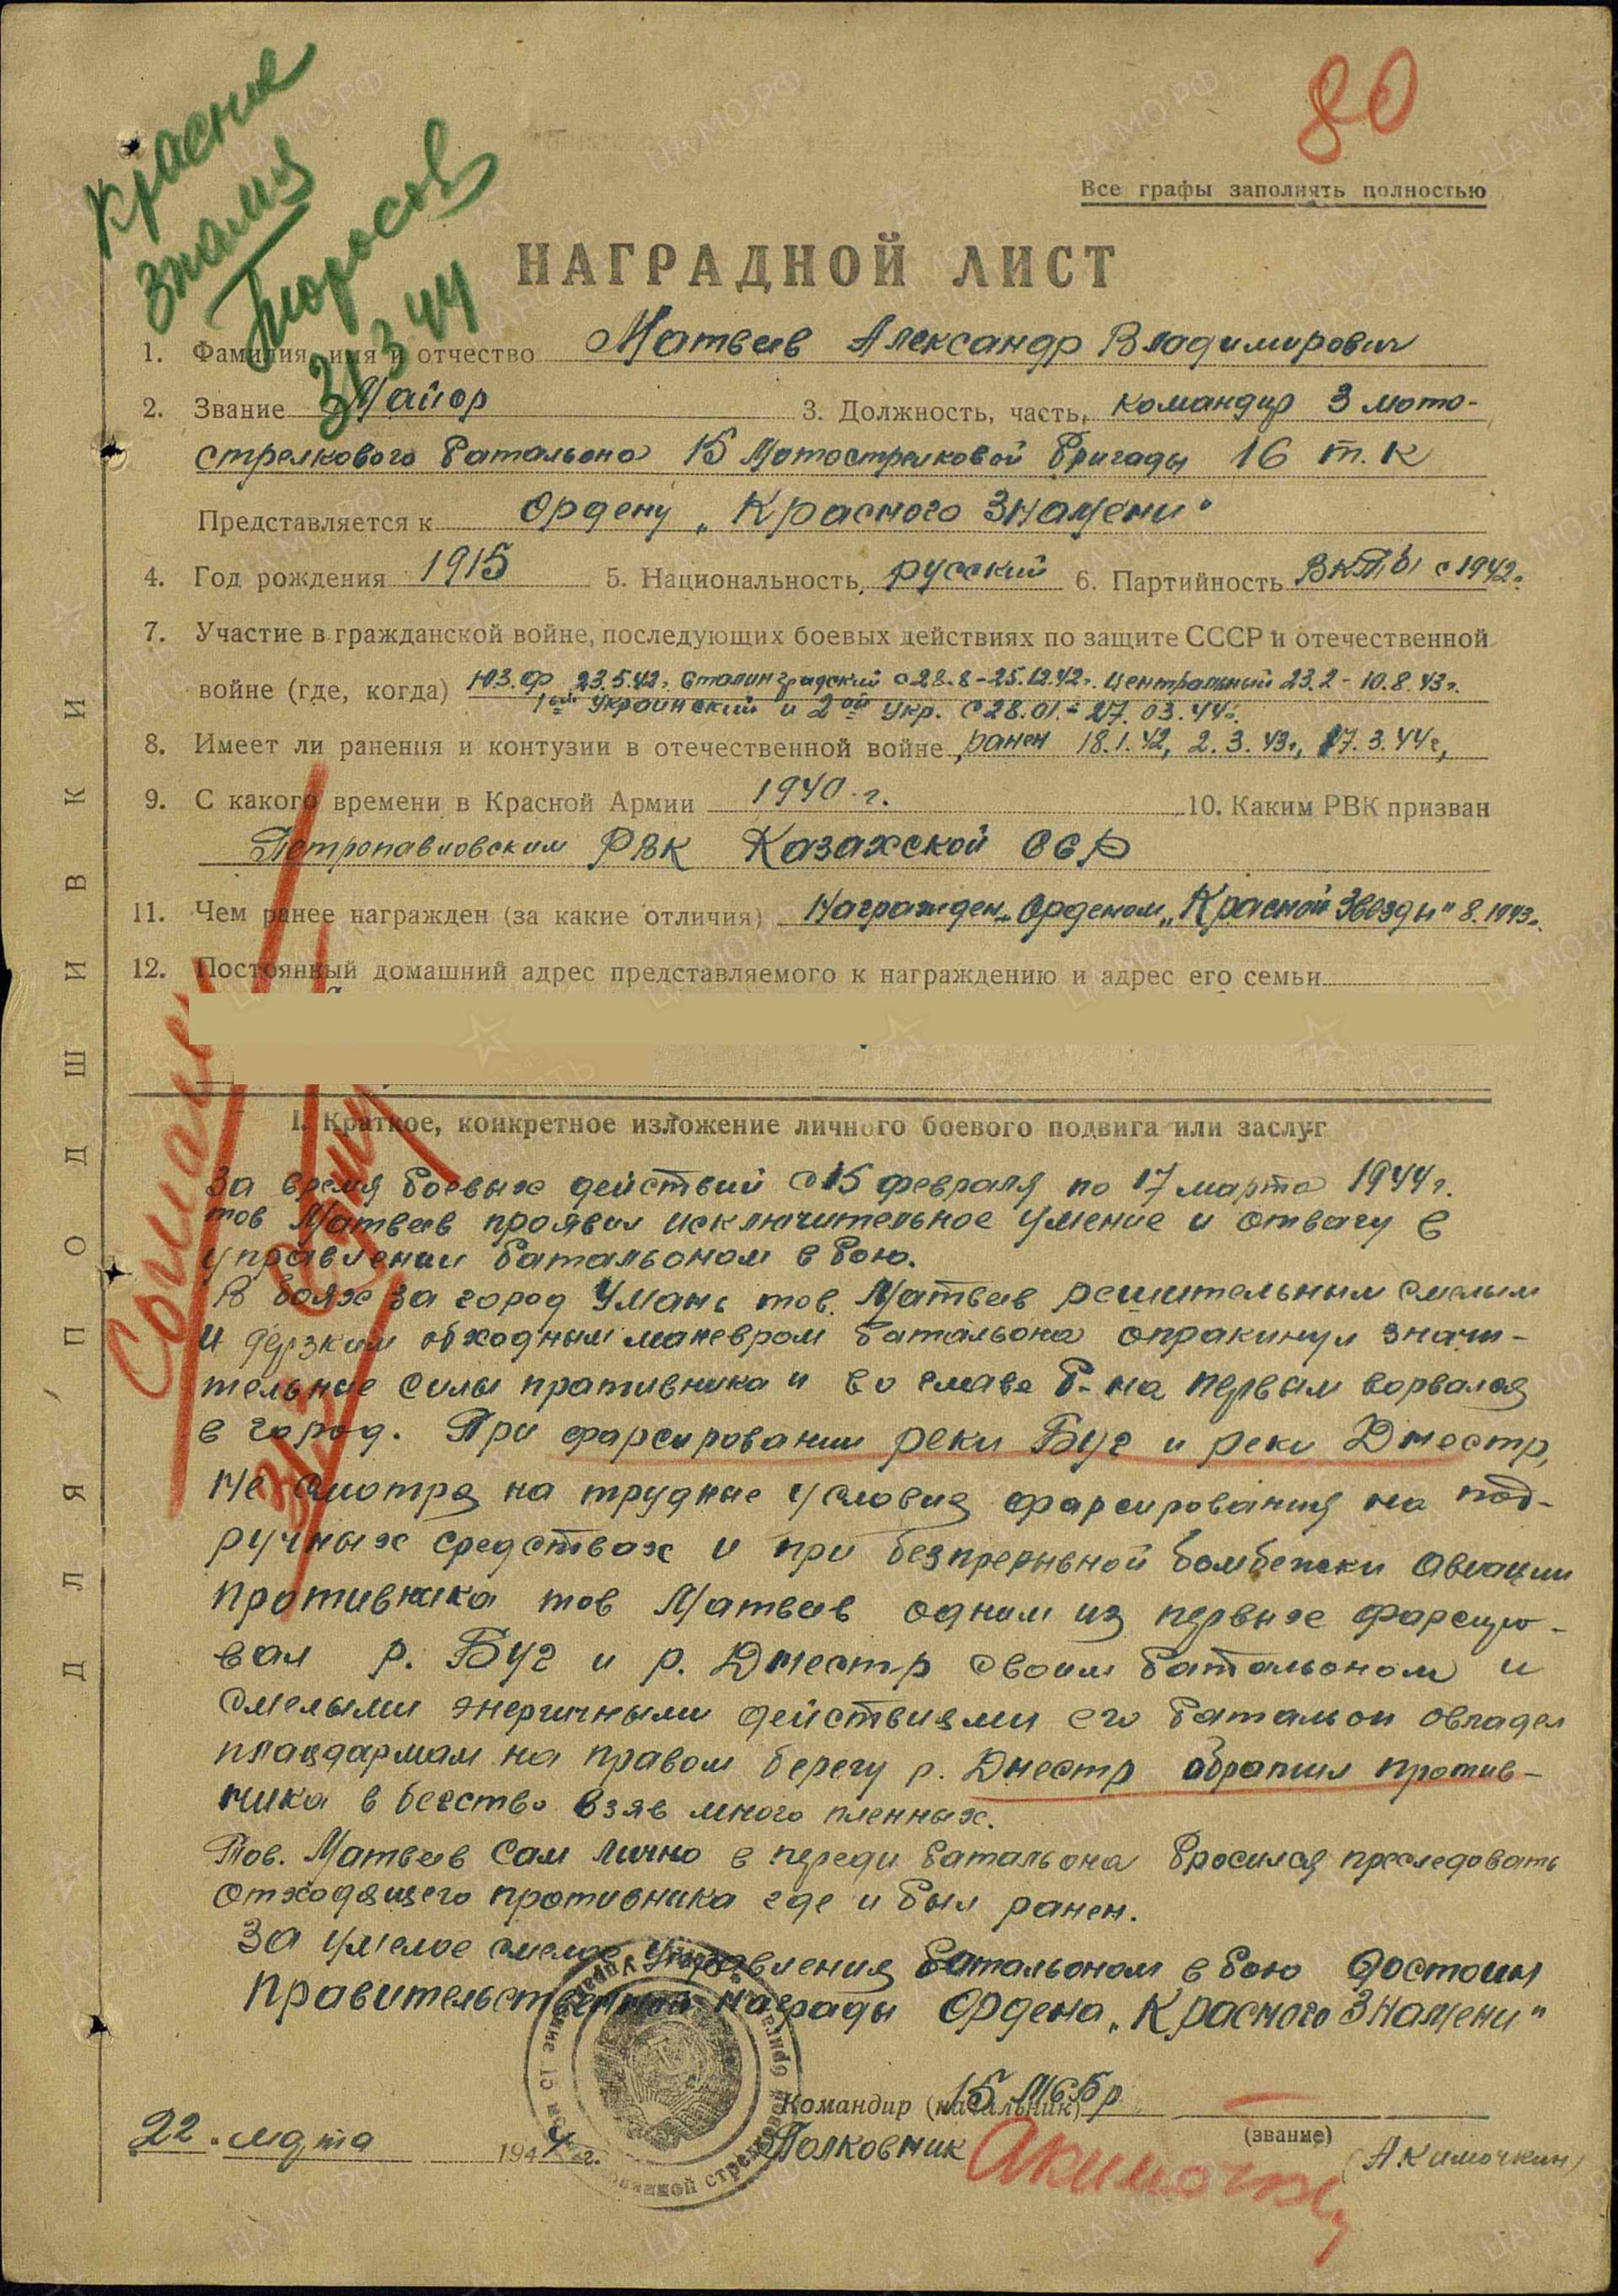 80
Красное
знамя
31 3 44
Все графы заполнять полностью
НАГРАДНОЙ ЛИСТ
1. Фамилия, имя и отчество Матвеев Александр Владимирович
2. Звание Майор 3. Должность, часть, командир 3 мото-
стрелкового батальона 15 Мотострелковой бригады 16 т.к
Представляется к Ордену „Красного Знамени"
4. Год рождения 1915 5. Национальность, русский 6. Партийность ВКПб с 1942г.
7. Участие в гражданской войне, последующих боевых действиях по защите СССР и отечественной
войне (где, когда) ЮЗ.ф 23.5.42г. Сталинградский с 28.8-25.12.42г. Центральный 23.2-10.8.43г.
1ый Украинский и 2ой Укр. с 28.01.-17.03.44г.
8. Имеет ли ранения и контузии в отечественной войне, ранен 18.1.42, 2.3.43г, 17.3.44г,
9. С какого времени в Красной Армии 1940.г. 10. Каким РВК призван
Петропавловским РВК Казахской ССР
11. Чем ранее награжден (за какие отличия) Награжден Орденом „Красной Звезды" 8.1943г.
12. Постоянный домашний адрес представляемого к награждению и адрес его семьи
I. Краткое, конкретное изложение личного боевого подвига или заслуг
За время боевых действий с 15 февраля по 17 марта 1944г.
тов Матвеев проявил исключительное умение и отвагу в
управлении батальоном в бою.
В боях за город Умань тов. Матвеев решительным смелым
и дерзким обходным маневром батальона опракинул значи-
тельные силы пративника и во главе б-на первым ворвался
в город. При фарсировании реки Буг и реки Днестр,
Не смотря на трудные условия фарсирования на под-
ручных средствах и при безпрерывной бомбежки авиации
противника тов Матвеев одним из первых фарсиро-
вал р. Буг и р. Днестр своим батальоном и
смелыми энергичными действиями его батальон овладел
плацдармам на правом берегу р. Днестр обратил против-
ника в бегство взяв много пленных.
Тов. Матвеев сам лично в переди батальона бросился преследовать
отходящего противника где и был ранен.
За умелое смелое управления батальоном в бою достоин
Правительственной награды Ордена „Красного Знамени"
Командир (начальник) 15 МСБр
(звание)
22. марта 1944 г. Полковник Акимочкин (Акимочкин)
Согласен
ДЛЯ ПОДШИВКИ